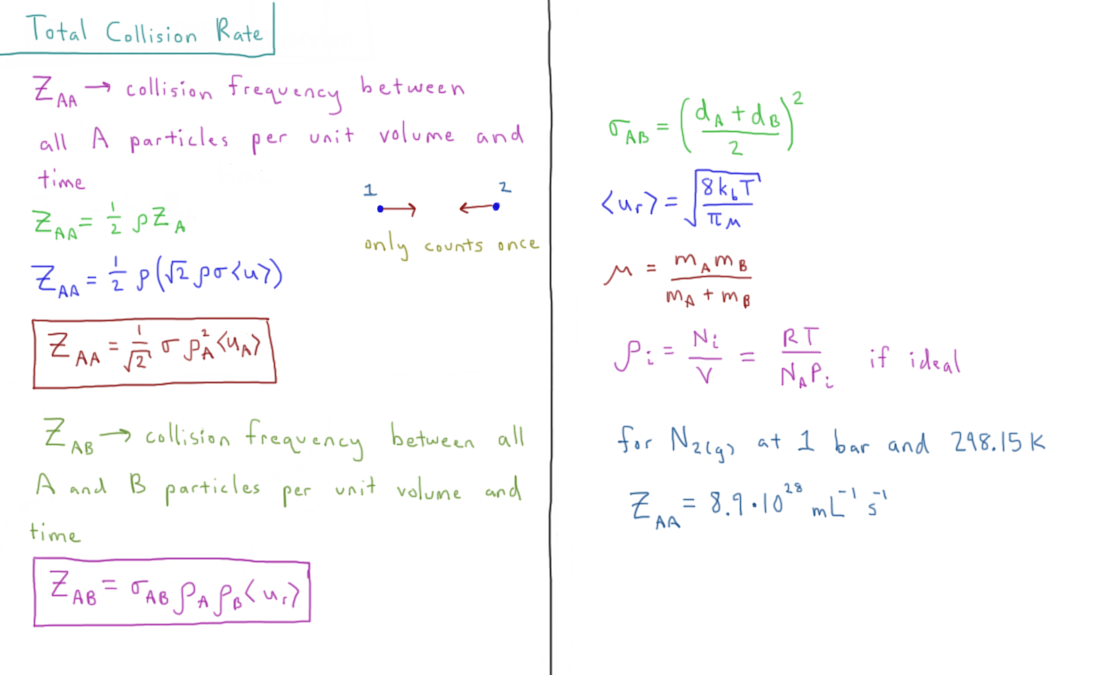 Total Collision Rate
Z_AA → collision frequency between
all A particles per unit volume and
time
1 2
Z_AA = 1/2 ρ Z_A
only counts once
Z_AA = 1/2 ρ(√2 ρσ<u>)
Z_AA = 1/√2 σ ρ_A² <u_A>
Z_AB → collision frequency between all
A and B particles per unit volume and
time
Z_AB = σ_AB ρ_A ρ_B <u_r>
σ_AB = ((d_A + d_B)/2)²
<u_r> = √(8k_bT/πμ)
μ = m_A m_B/(m_A + m_B)
ρ_i = N_i/V = RT/(N_A P_i) if ideal
for N₂(g) at 1 bar and 298.15 K
Z_AA = 8.9·10²⁸ mL⁻¹ s⁻¹